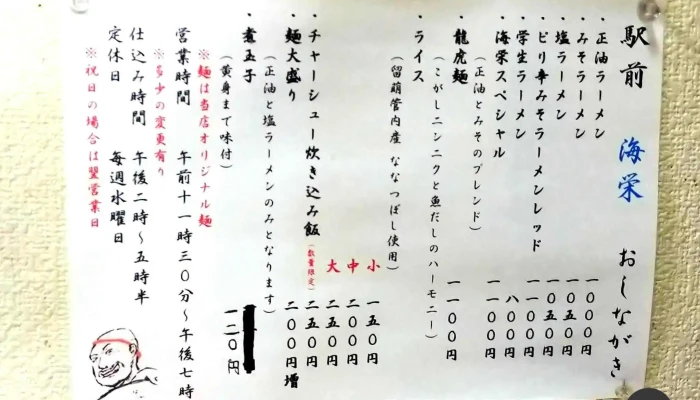 駅前 海栄 おしながき
・正油ラーメン 一〇〇〇円
・みそラーメン 一〇五〇円
・塩ラーメン 一〇五〇円
・ピリ辛みそラーメンレッド 一一〇〇円
・学生ラーメン 八〇〇円
・海栄スペシャル 一一〇〇円
(正油とみそのブレンド)
・龍虎麺 一一〇〇円
(こがしニンニクと魚だしのハーモニー)
・ライス 小 一五〇円
(留萌管内産 ななつぼし使用) 中 二〇〇円
大 二五〇円
・チャーシュー炊き込み飯 (数量限定) 二五〇円
・麺大盛り 二〇〇円増
(正油と塩ラーメンのみとなります)
・煮玉子 一二〇円
(黄身まで味付)
※麺は当店オリジナル麺
営業時間 午前十一時三〇分~午後七時
※多少の変更有り
仕込み時間 午後二時~五時半
定休日 毎週水曜日
※祝日の場合は翌営業日